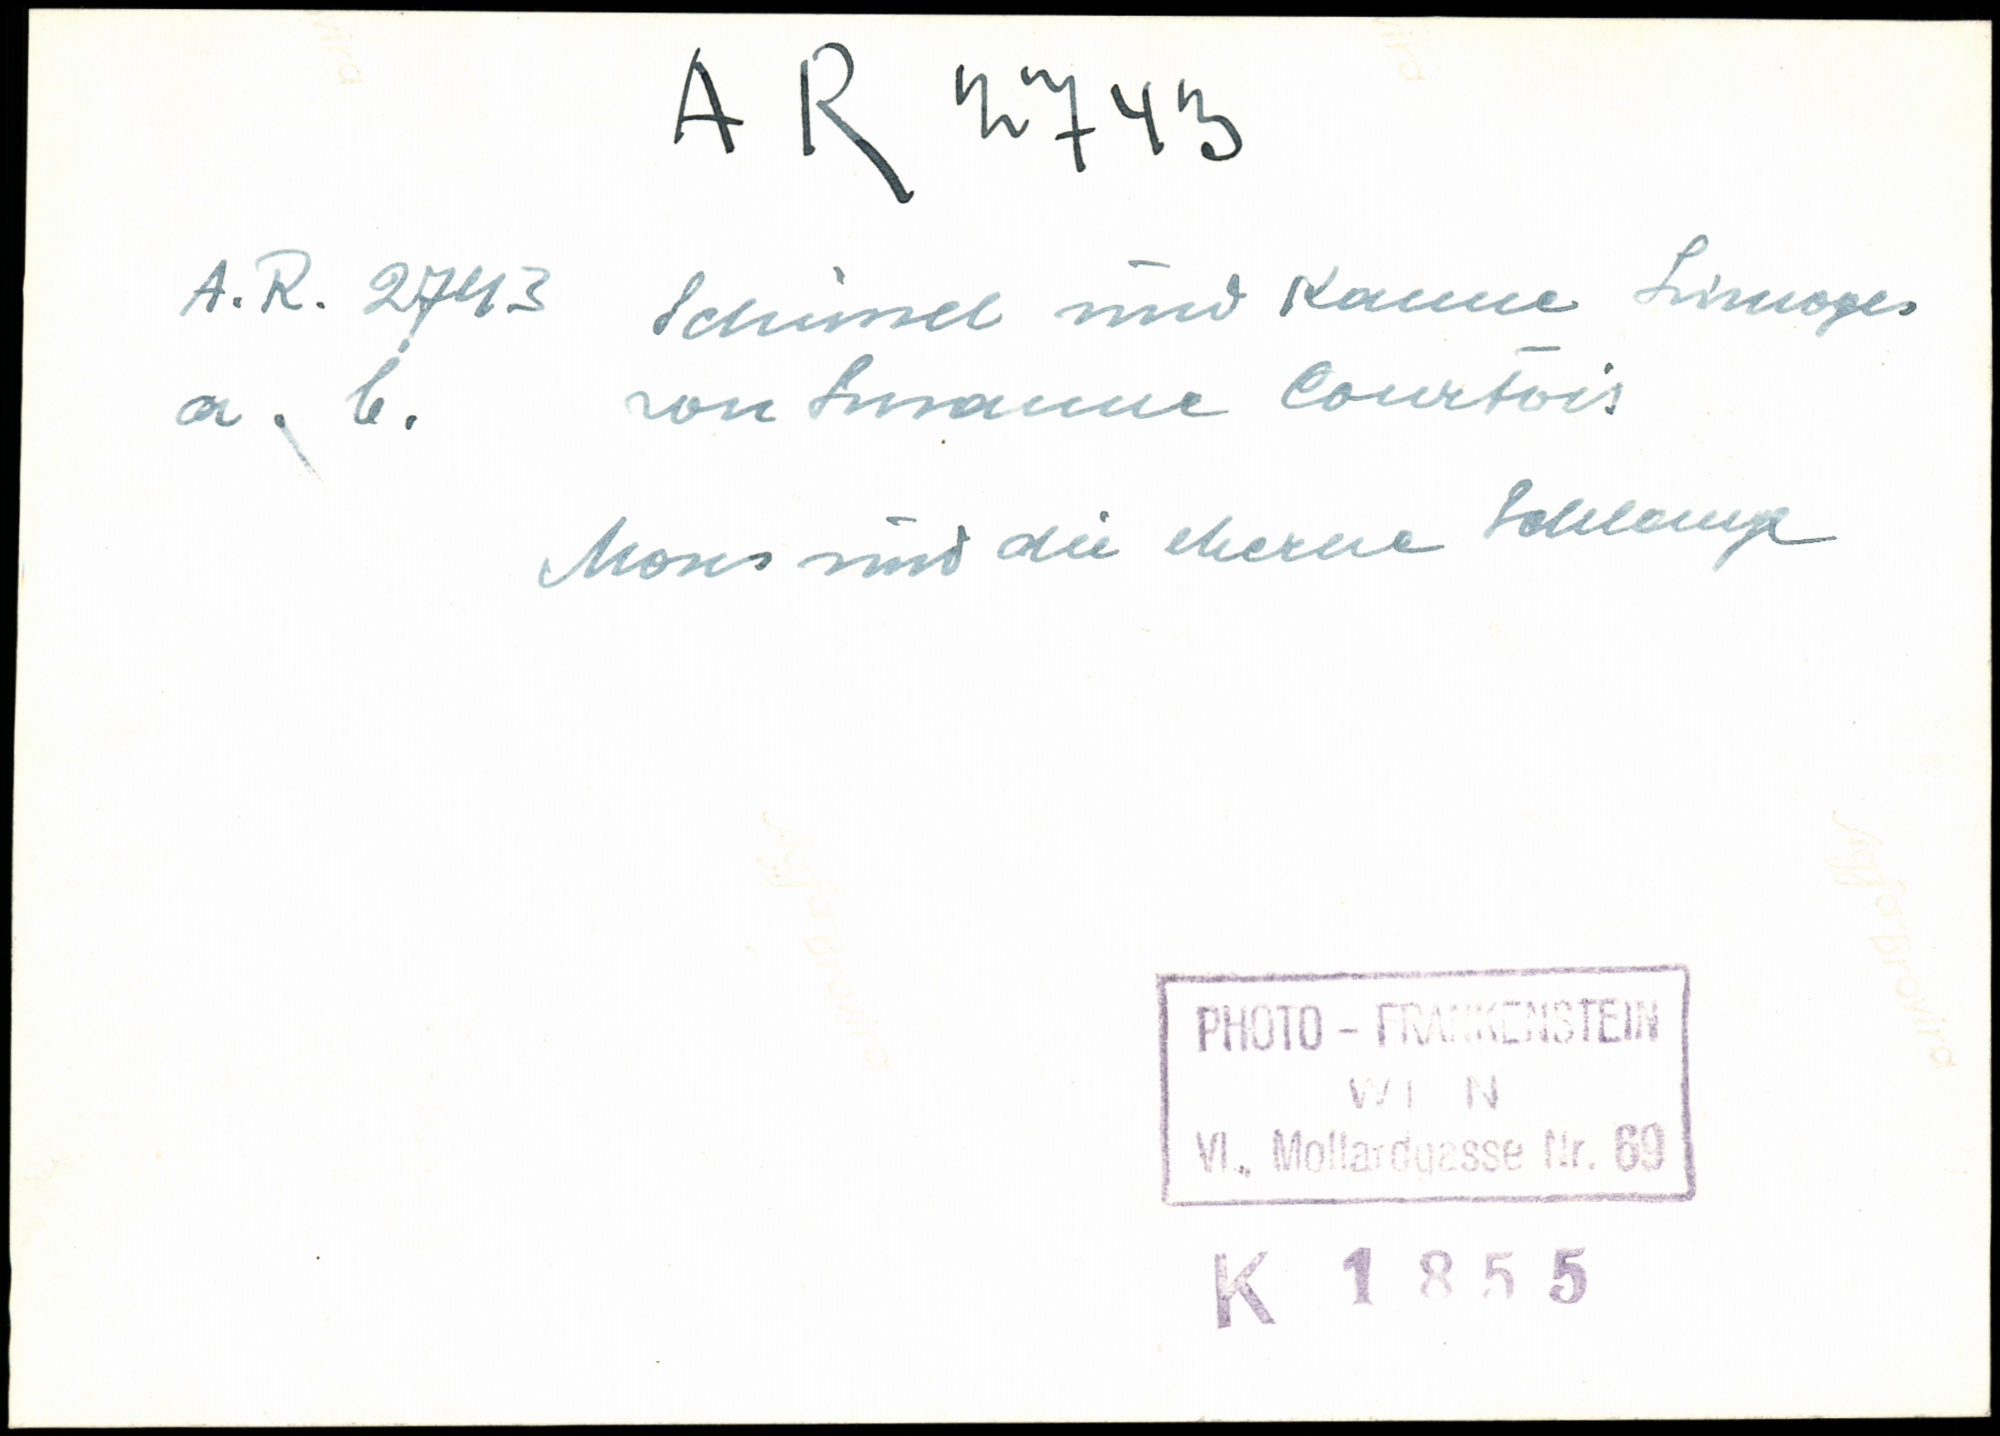 A R 2743
A.R. 2743 Schüssel und Kanne Limoges
a. b. von Susanne Courtois
Moses und die eherne Schlange
PHOTO - FRANKENSTEIN
WIEN
VI., Mollardgasse Nr. 69
K 1855
Agfa Brovira
Agfa Brovira